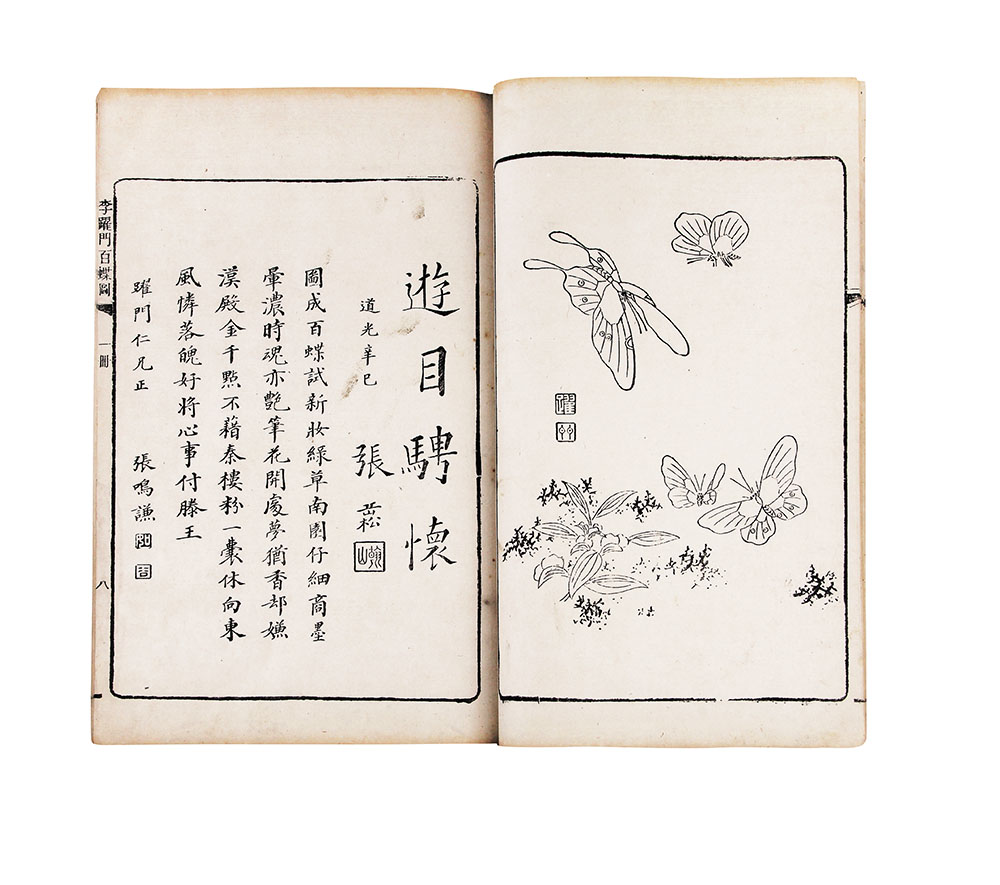 遊目騁懷
道光辛巳
張岳崧
瀚山
圖成百蝶試新妝綠草南園仔細商墨
暈濃時魂亦艷筆花開處夢猶香却嫌
漢殿金千點不藉秦樓粉一囊休向東
風憐落魄好將心事付滕王
躍門仁兄正 張鳴謙
李躍門百蝶圖 一圖 八